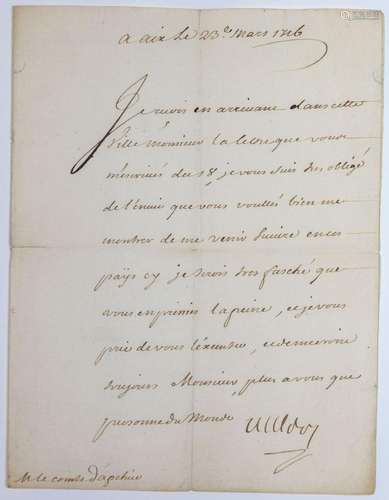 a aix le 23e mars 1716
Je recois en arrivant dans cette
Ville monsieur la lettre que vous
mescrivés du 18 je vous suis tres obligé
de l'envie que vous voullés bien me
montrer de me venir suivre en ces
pays cy je serois tres fasché que
vous en prissiés la peine, et je vous
prie de vous l'exempter, et de me croire
toujours Monsieur, plus a vous que
personne du Monde
M. le comte d'apchier